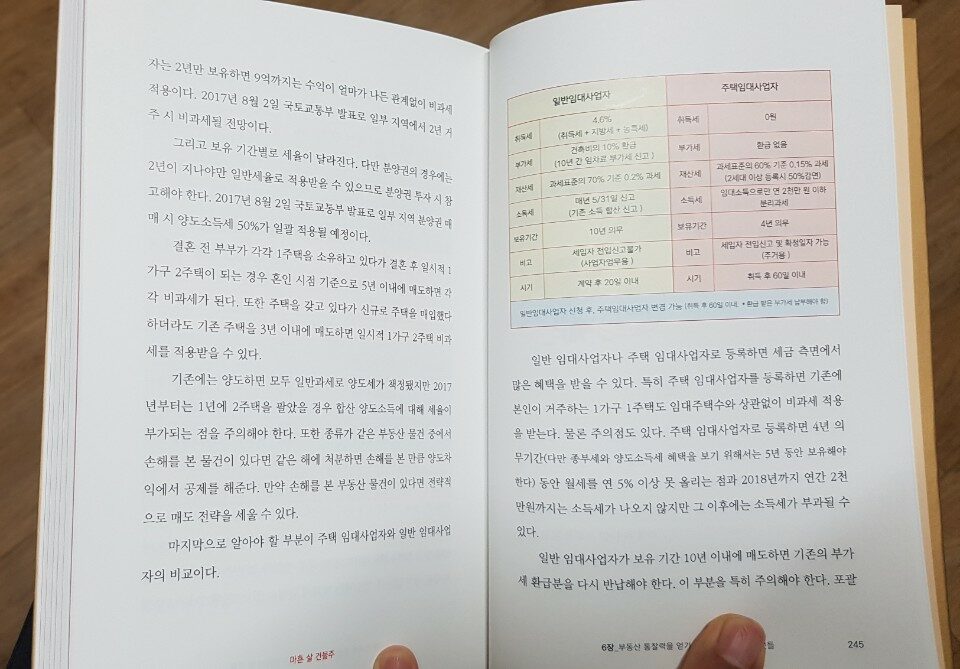 자는 2년만 보유하면 9억까지는 수익이 얼마가 나든 관계없이 비과세
적용이다. 2017년 8월 2일 국토교통부 발표로 일부 지역에서 2년 거
주 시 비과세될 전망이다.
그리고 보유 기간별로 세율이 달라진다. 다만 분양권의 경우에는
2년이 지나야만 일반세율로 적용받을 수 있으므로 분양권 투자 시 참
고해야 한다. 2017년 8월 2일 국토교통부 발표로 일부 지역 분양권 매
매 시 양도소득세 50%가 일괄 적용될 예정이다.
결혼 전 부부가 각각 1주택을 소유하고 있다가 결혼 후 일시적 1
가구 2주택이 되는 경우 혼인 시점 기준으로 5년 이내에 매도하면 각
각 비과세가 된다. 또한 주택을 갖고 있다가 신규로 주택을 매입했다
하더라도 기존 주택을 3년 이내에 매도하면 일시적 1가구 2주택 비과
세를 적용받을 수 있다.
기존에는 양도하면 모두 일반과세로 양도세가 책정됐지만 2017
년부터는 1년에 2주택을 팔았을 경우 합산 양도소득에 대해 세율이
부가되는 점을 주의해야 한다. 또한 종류가 같은 부동산 물건 중에서
손해를 본 물건이 있다면 같은 해에 처분하면 손해를 본 만큼 양도차
익에서 공제를 해준다. 만약 손해를 본 부동산 물건이 있다면 전략적
으로 매도 전략을 세울 수 있다.
마지막으로 알아야 할 부분이 주택 임대사업자와 일반 임대사업
자의 비교이다.
마흔 살 건물주
일반임대사업자 주택임대사업자
취득세 4.6% (취득세 + 지방세 + 농특세) 취득세 0원
부가세 건축비의 10% 환급 (10년 간 임차료 부가세 신고) 부가세 환급 없음
재산세 과세표준의 70% 기준 0.2% 과세 재산세 과세표준의 60% 기준 0.15% 과세 (2세대 이상 등록시 50%감면)
소득세 매년 5/31일 신고 (기존 소득 합산 신고) 소득세 임대소득으로만 연 2천만 원 이하 분리과세
보유기간 10년 의무 보유기간 4년 의무
비고 세입자 전입신고불가 (사업자업무용) 비고 세입자 전입신고 및 확정일자 가능 (주거용)
시기 계약 후 20일 이내 시기 취득 후 60일 이내
일반임대사업자 신청 후, 주택임대사업자 변경 가능 (취득 후 60일 이내. * 환급 받은 부가세 납부해야 함)
일반 임대사업자나 주택 임대사업자로 등록하면 세금 측면에서
많은 혜택을 받을 수 있다. 특히 주택 임대사업자를 등록하면 기존에
본인이 거주하는 1가구 1주택도 임대주택수와 상관없이 비과세 적용
을 받는다. 물론 주의점도 있다. 주택 임대사업자로 등록하면 4년 의
무기간(다만 종부세와 양도소득세 혜택을 보기 위해서는 5년 동안 보유해야
한다) 동안 월세를 연 5% 이상 못 올리는 점과 2018년까지 연간 2천
만원까지는 소득세가 나오지 않지만 그 이후에는 소득세가 부과될 수
있다.
일반 임대사업자가 보유 기간 10년 이내에 매도하면 기존의 부가
세 환급분을 다시 반납해야 한다. 이 부분을 특히 주의해야 한다. 포괄
6장_부동산 통찰력을 얻기 245